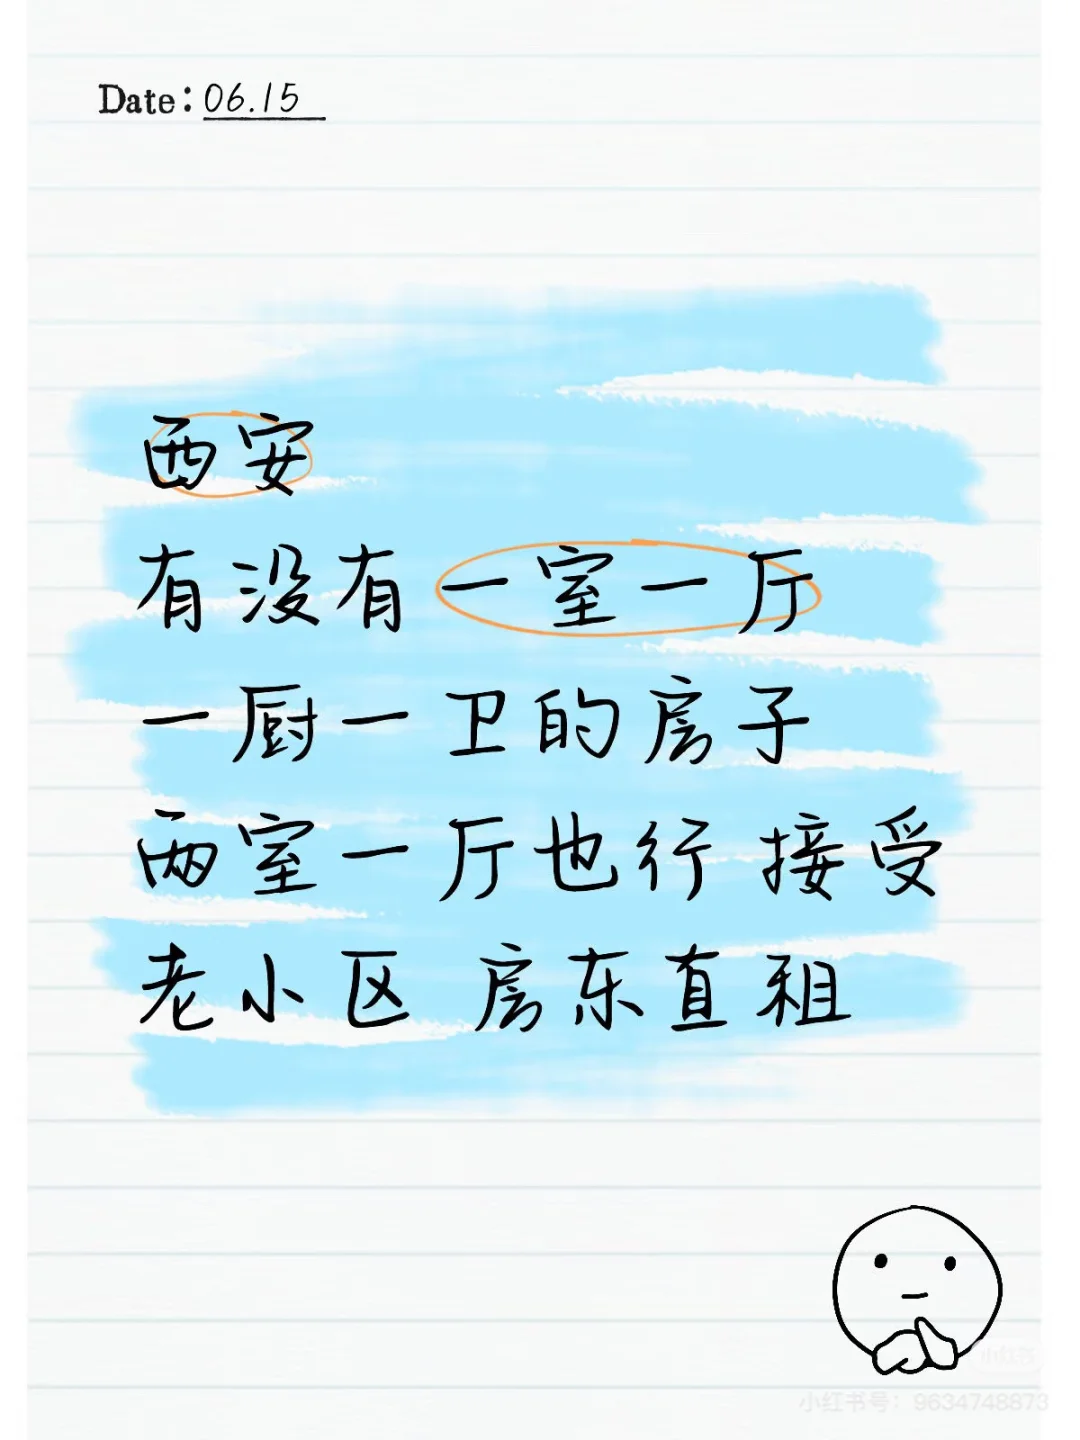 Date: 06.15
西安
有没有一室一厅
一厨一卫的房子
两室一厅也行 接受
老小区 房东直租
小红书
小红书号：9634748873